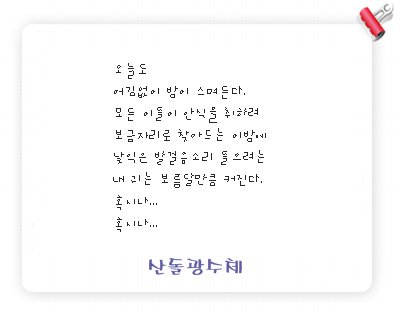 오늘도
어김없이 밤이 스며든다.
모든 이들이 안식을 취하려
보금자리로 찾아드는 이밤에
낯익은 발걸음소리 들으려는
내 귀는 보름달만큼 커진다.
혹시나...
혹시나...
산돌광수체